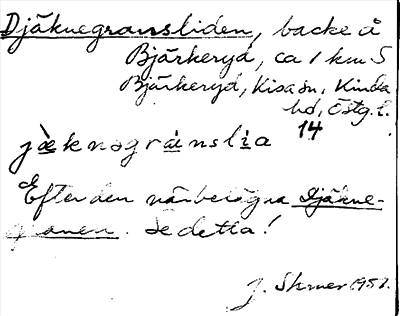 Djäknegransliden, backe å
Bjärkeryd, ca 1 km S
Bjärkeryd, Kisa sn, Kinda
hd, Östg. l.
14
jæknəgranslia
Efter den närbelägna Djäkne-
granen. Se detta!
J. Skruer 1957.